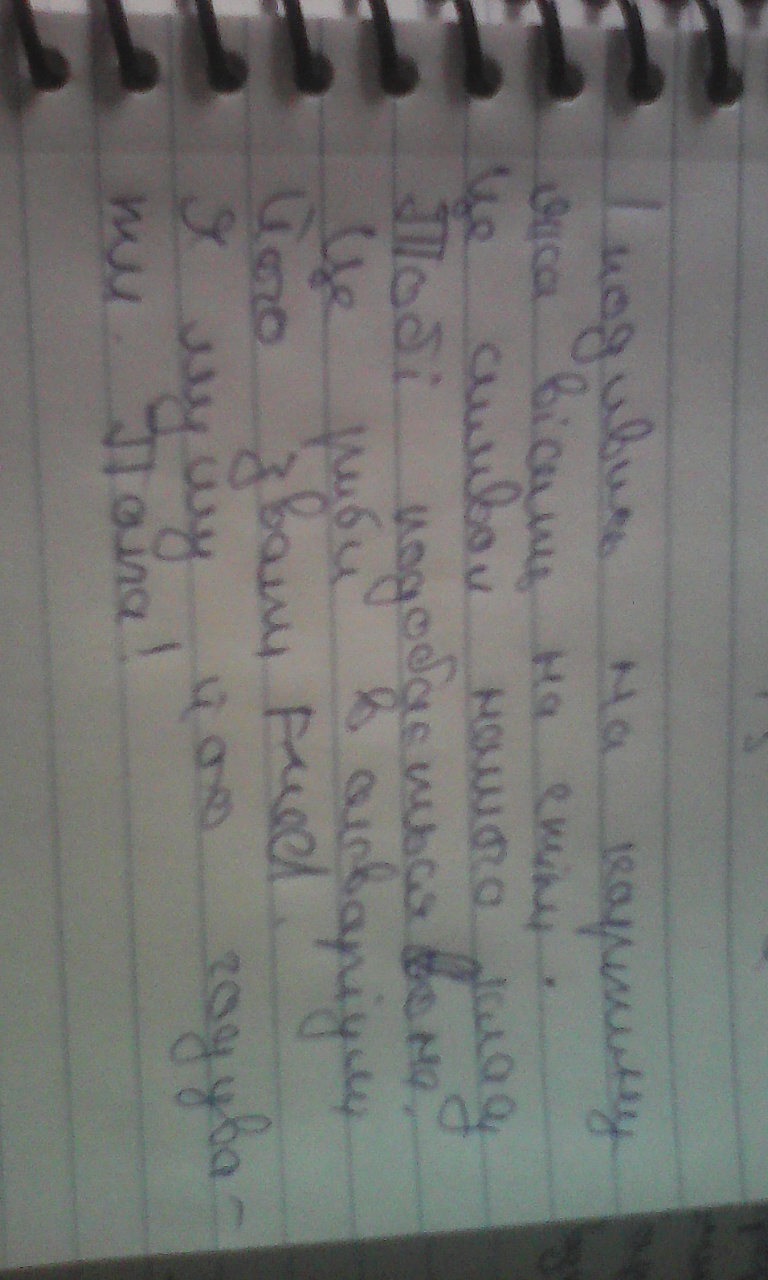 І подивись на картину
яка висить на стіні.
Це символ нашого клоу
Тобі подобається вона.
Це риби в акваріумі
Його звати Fried.
Я мушу його годува-
ти. Папа!